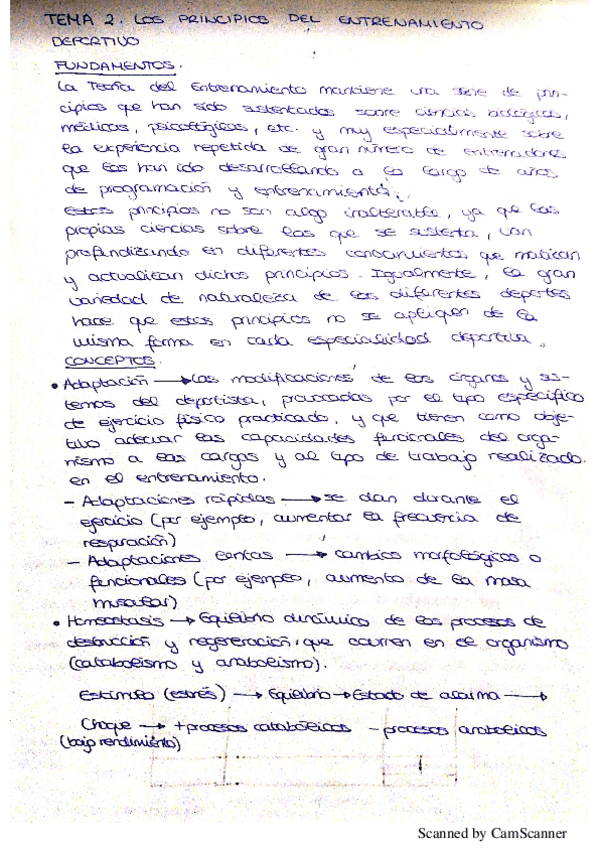 TEMA 2. LOS PRINCIPIOS DEL ENTRENAMIENTO
DEPORTIVO
FUNDAMENTOS.
La Teoría del Entrenamiento mantiene una serie de prin-
cipios que han sido sustentados sobre ciencias biológicas,
médicas, psicológicas, etc. y muy especialmente sobre
la experiencia repetida de gran número de entrenadores
que los han ido desarrollando a lo largo de años
de programación y entrenamiento.
Estos principios no son algo inalterable, ya que las
propias ciencias sobre las que se sustenta, van
profundizando en diferentes conocimientos que matizan
y actualizan dichos principios. Igualmente, la gran
variedad de naturaleza de los diferentes deportes
hace que estos principios no se apliquen de la
misma forma en cada especialidad deportiva.
CONCEPTOS.
• Adaptación → Las modificaciones de los órganos y sis-
temas del deportista, provocadas por el tipo específico
de ejercicio físico practicado, y que tienen como obje-
tivo adecuar las capacidades funcionales del orga-
nismo a las cargas y al tipo de trabajo realizado
en el entrenamiento.
- Adaptaciones rápidas → se dan durante el
ejercicio (por ejemplo, aumentar la frecuencia de
respiración)
- Adaptaciones lentas → cambios morfológicos o
funcionales (por ejemplo, aumento de la masa
muscular)
• Homeostasis → Equilibrio dinámico de los procesos de
destrucción y regeneración, que ocurren en el organismo
(catabolismo y anabolismo).
Estímulo (estrés) → Equilibrio → Estado de alarma →
Choque → + procesos catabólicos - procesos anabólicos
(bajo rendimiento)
Scanned by CamScanner